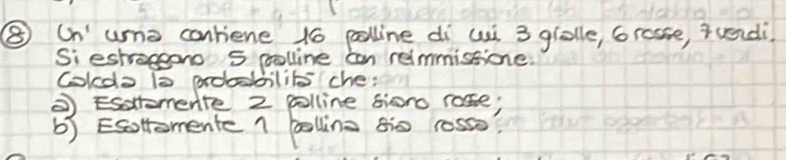 ⑧ Un' urna contiene 16 palline di cui 3 gialle, 6 rosse, 7 verdi.
Si estraggono 5 palline con reimmissione.
Calcola la probabilità che:
a) Esattamente 2 palline siano rosse;
b) Esattamente 1 pallina sia rossa.